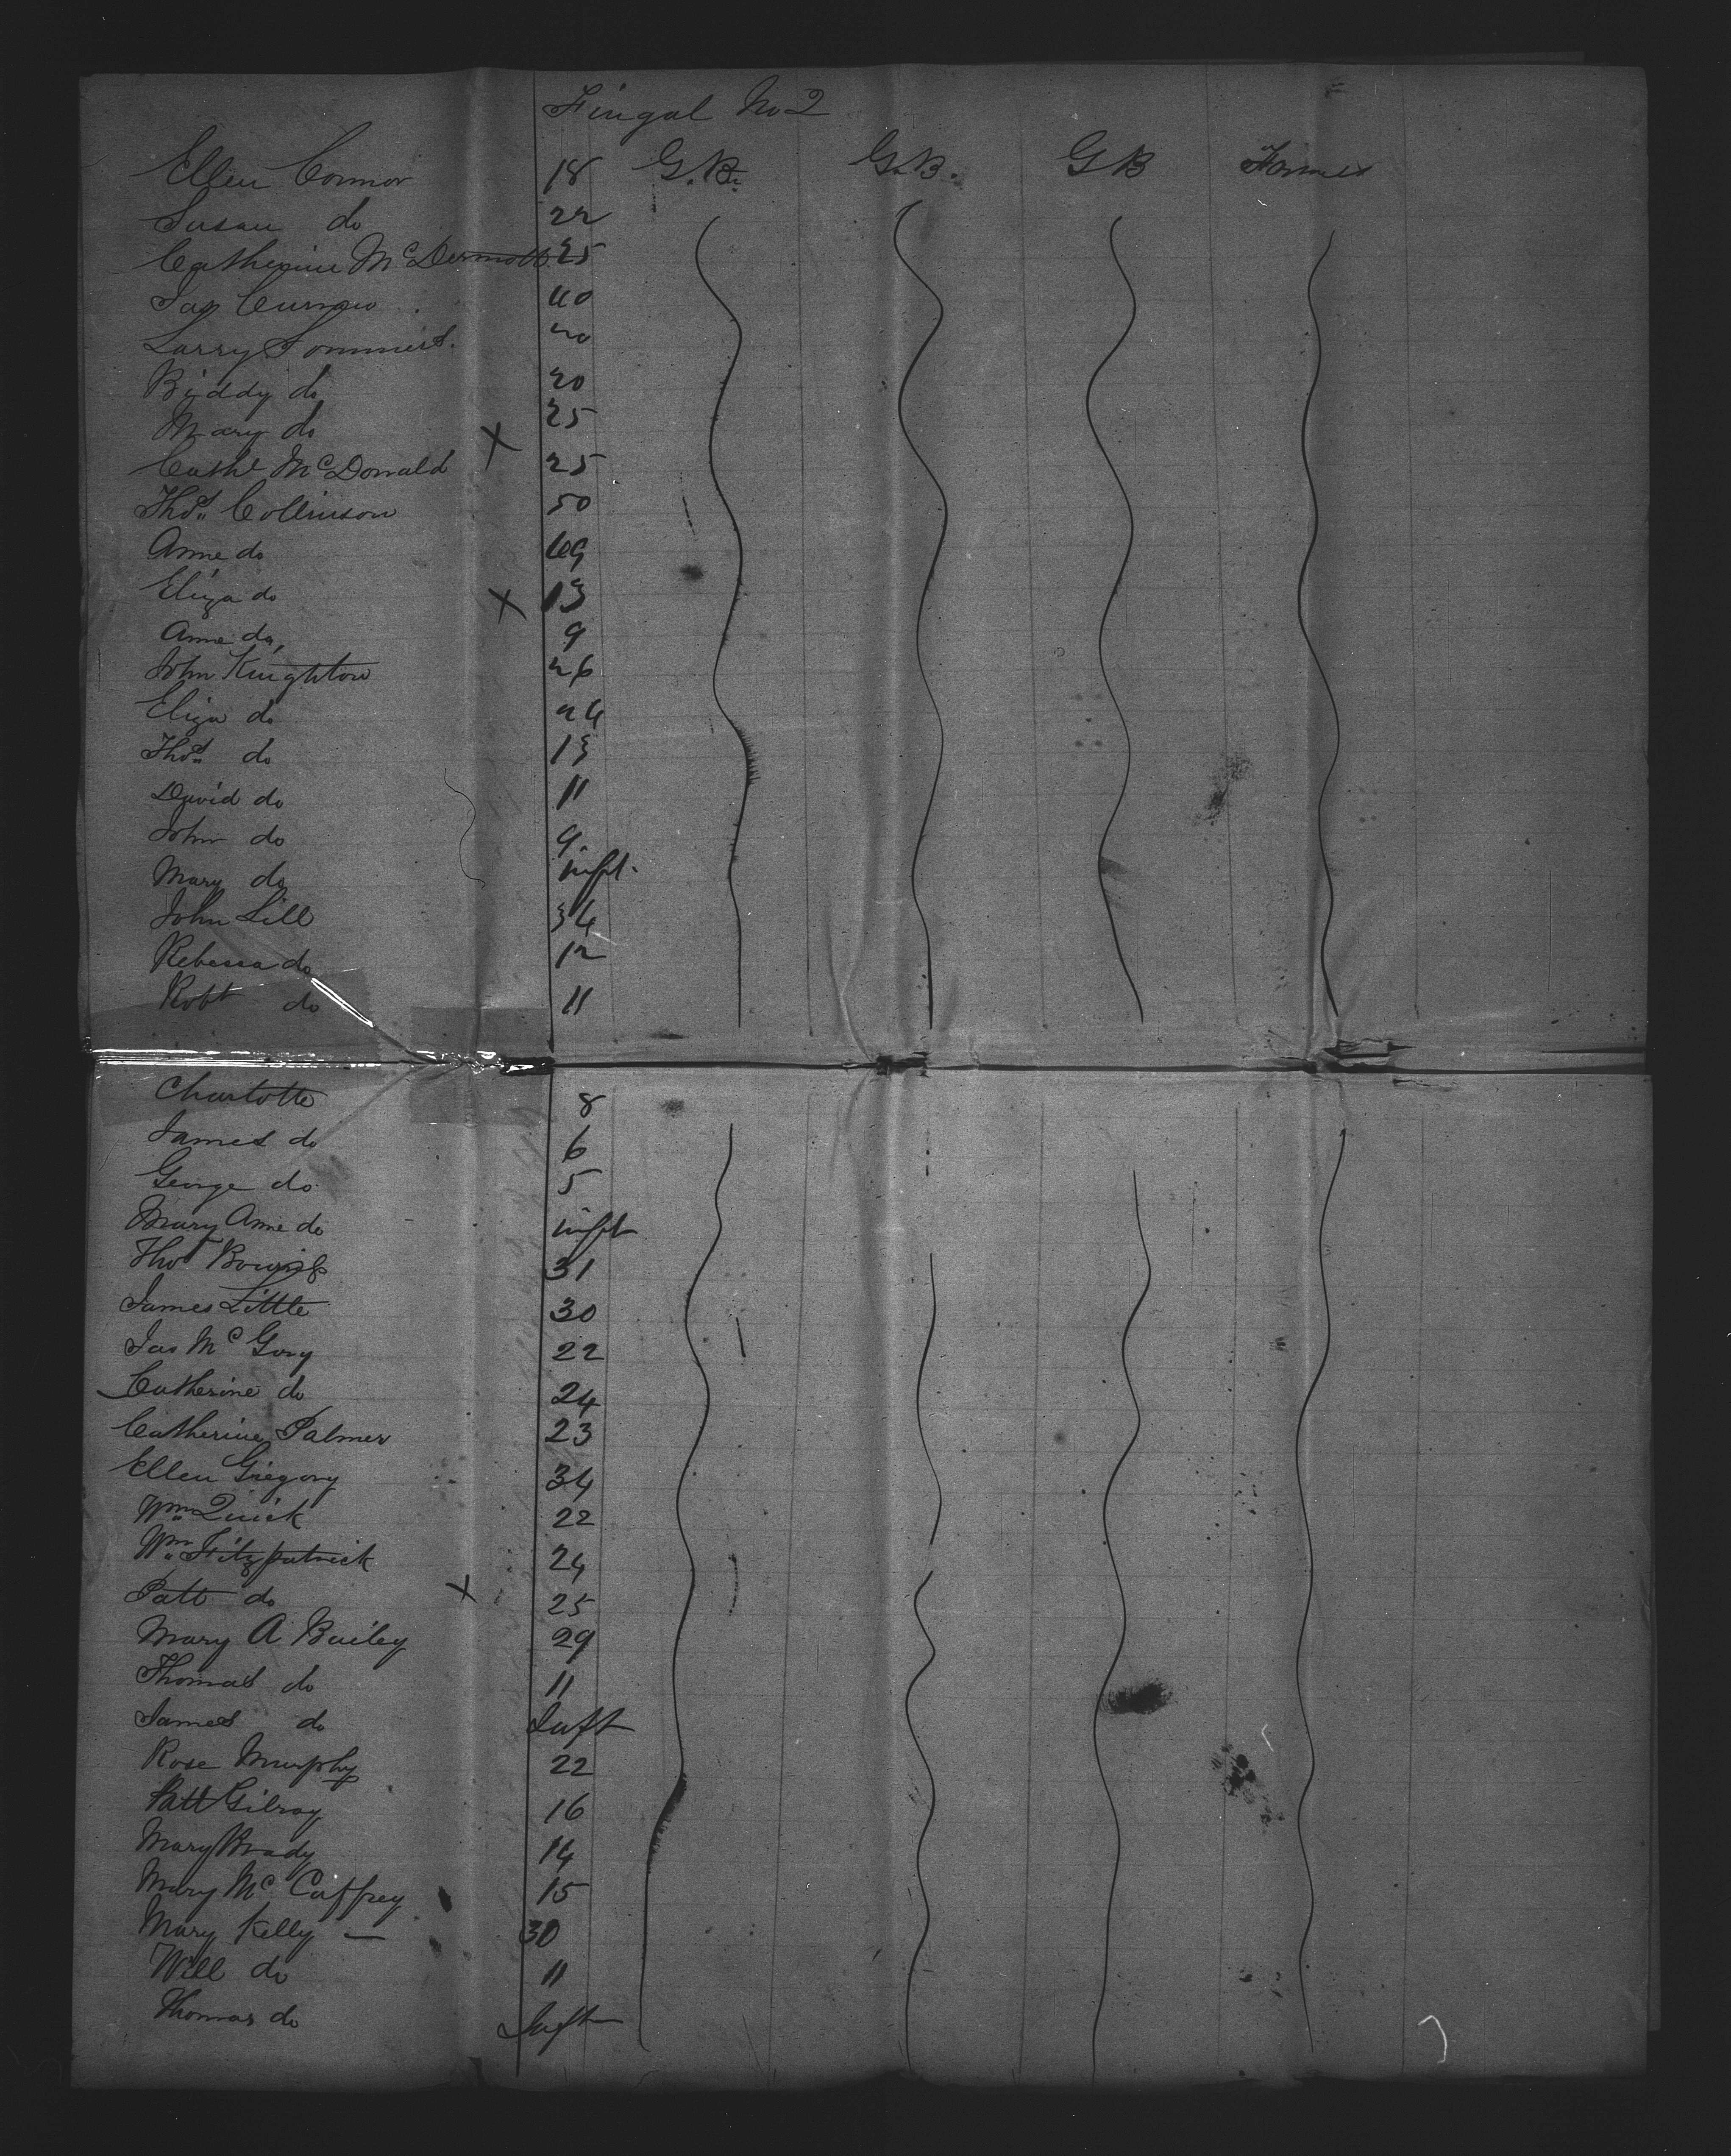 Fingal No 2
Ellen Connor 18 G.B. G.B. G B Farmer
Susan do 22
Catherine McDermott 25
Jas Curren 40
Larry Sommers. 20
Biddy do 20
Mary do 25
Cathe McDonald X 25
Thos. Collinson 50
Anne do 49
Eliza do X 13
Anne do, 9
John Knighton 26
Eliza do 24
Thos. do 13
David do 11
John do 9.
Mary do inft.
John Lill 34
Rebecca do 12
Robt do 11
Charlotte 8
James do 6
George do 5
Mary Anne do inft
Thos 31
James Little 30
Jas McGovy 22
Catherine do 24
Catherine Palmer 23
Ellen Gregory 34
Wm. Quick 22
Wm. Fitzpatrick 24
Patt do X 25
Mary A Bailey 29
Thomas do 11
James do Inft
Rose Murphy 22
Patt Gilroy 16
Mary Brady 14
Mary McCaffrey 15
Mary Kelly — 30
Will do 11
Thomas do Inft